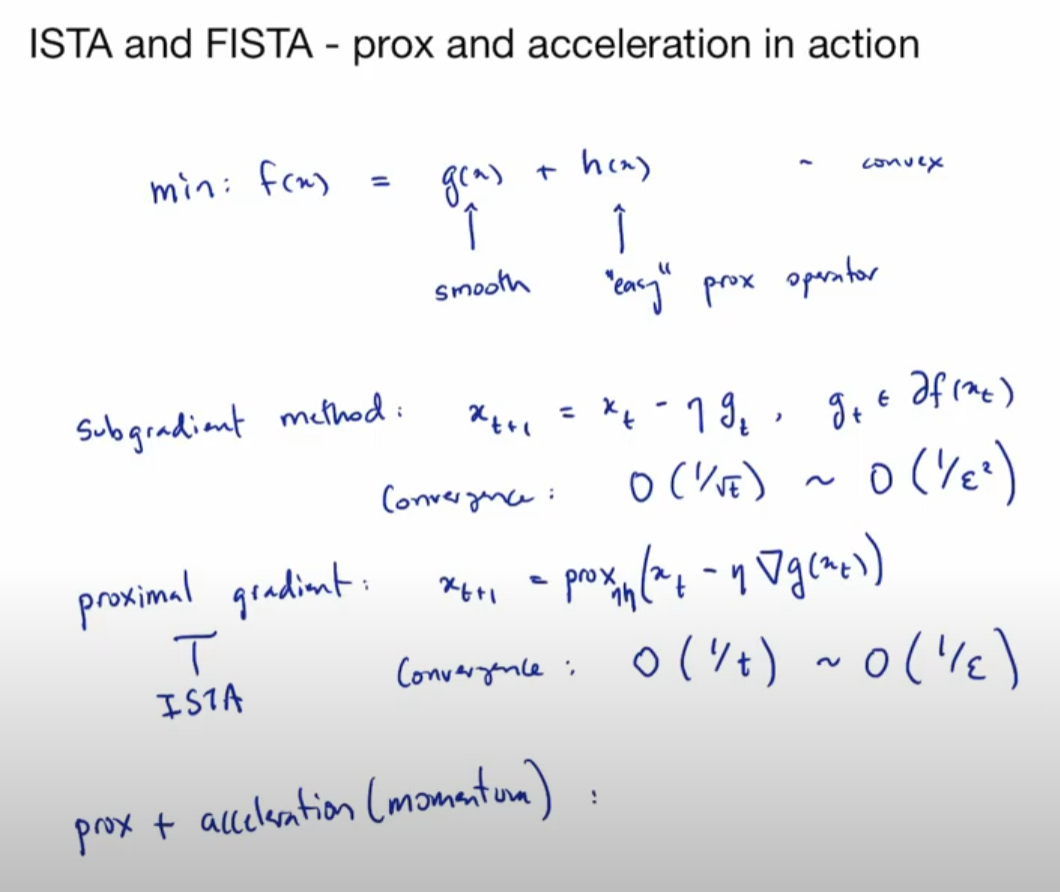 ISTA and FISTA - prox and acceleration in action
min: f(x) = g(x) + h(x) ~ convex
↑ ↑
smooth "easy" prox operator
Subgradient method: x_{t+1} = x_t - η g_t , g_t ∈ ∂f(x_t)
Convergence: O(1/√t) ~ O(1/ε²)
proximal gradient: x_{t+1} = prox_{ηh}(x_t - η∇g(x_t))
ISTA Convergence: O(1/t) ~ O(1/ε)
prox + acceleration (momentum) :